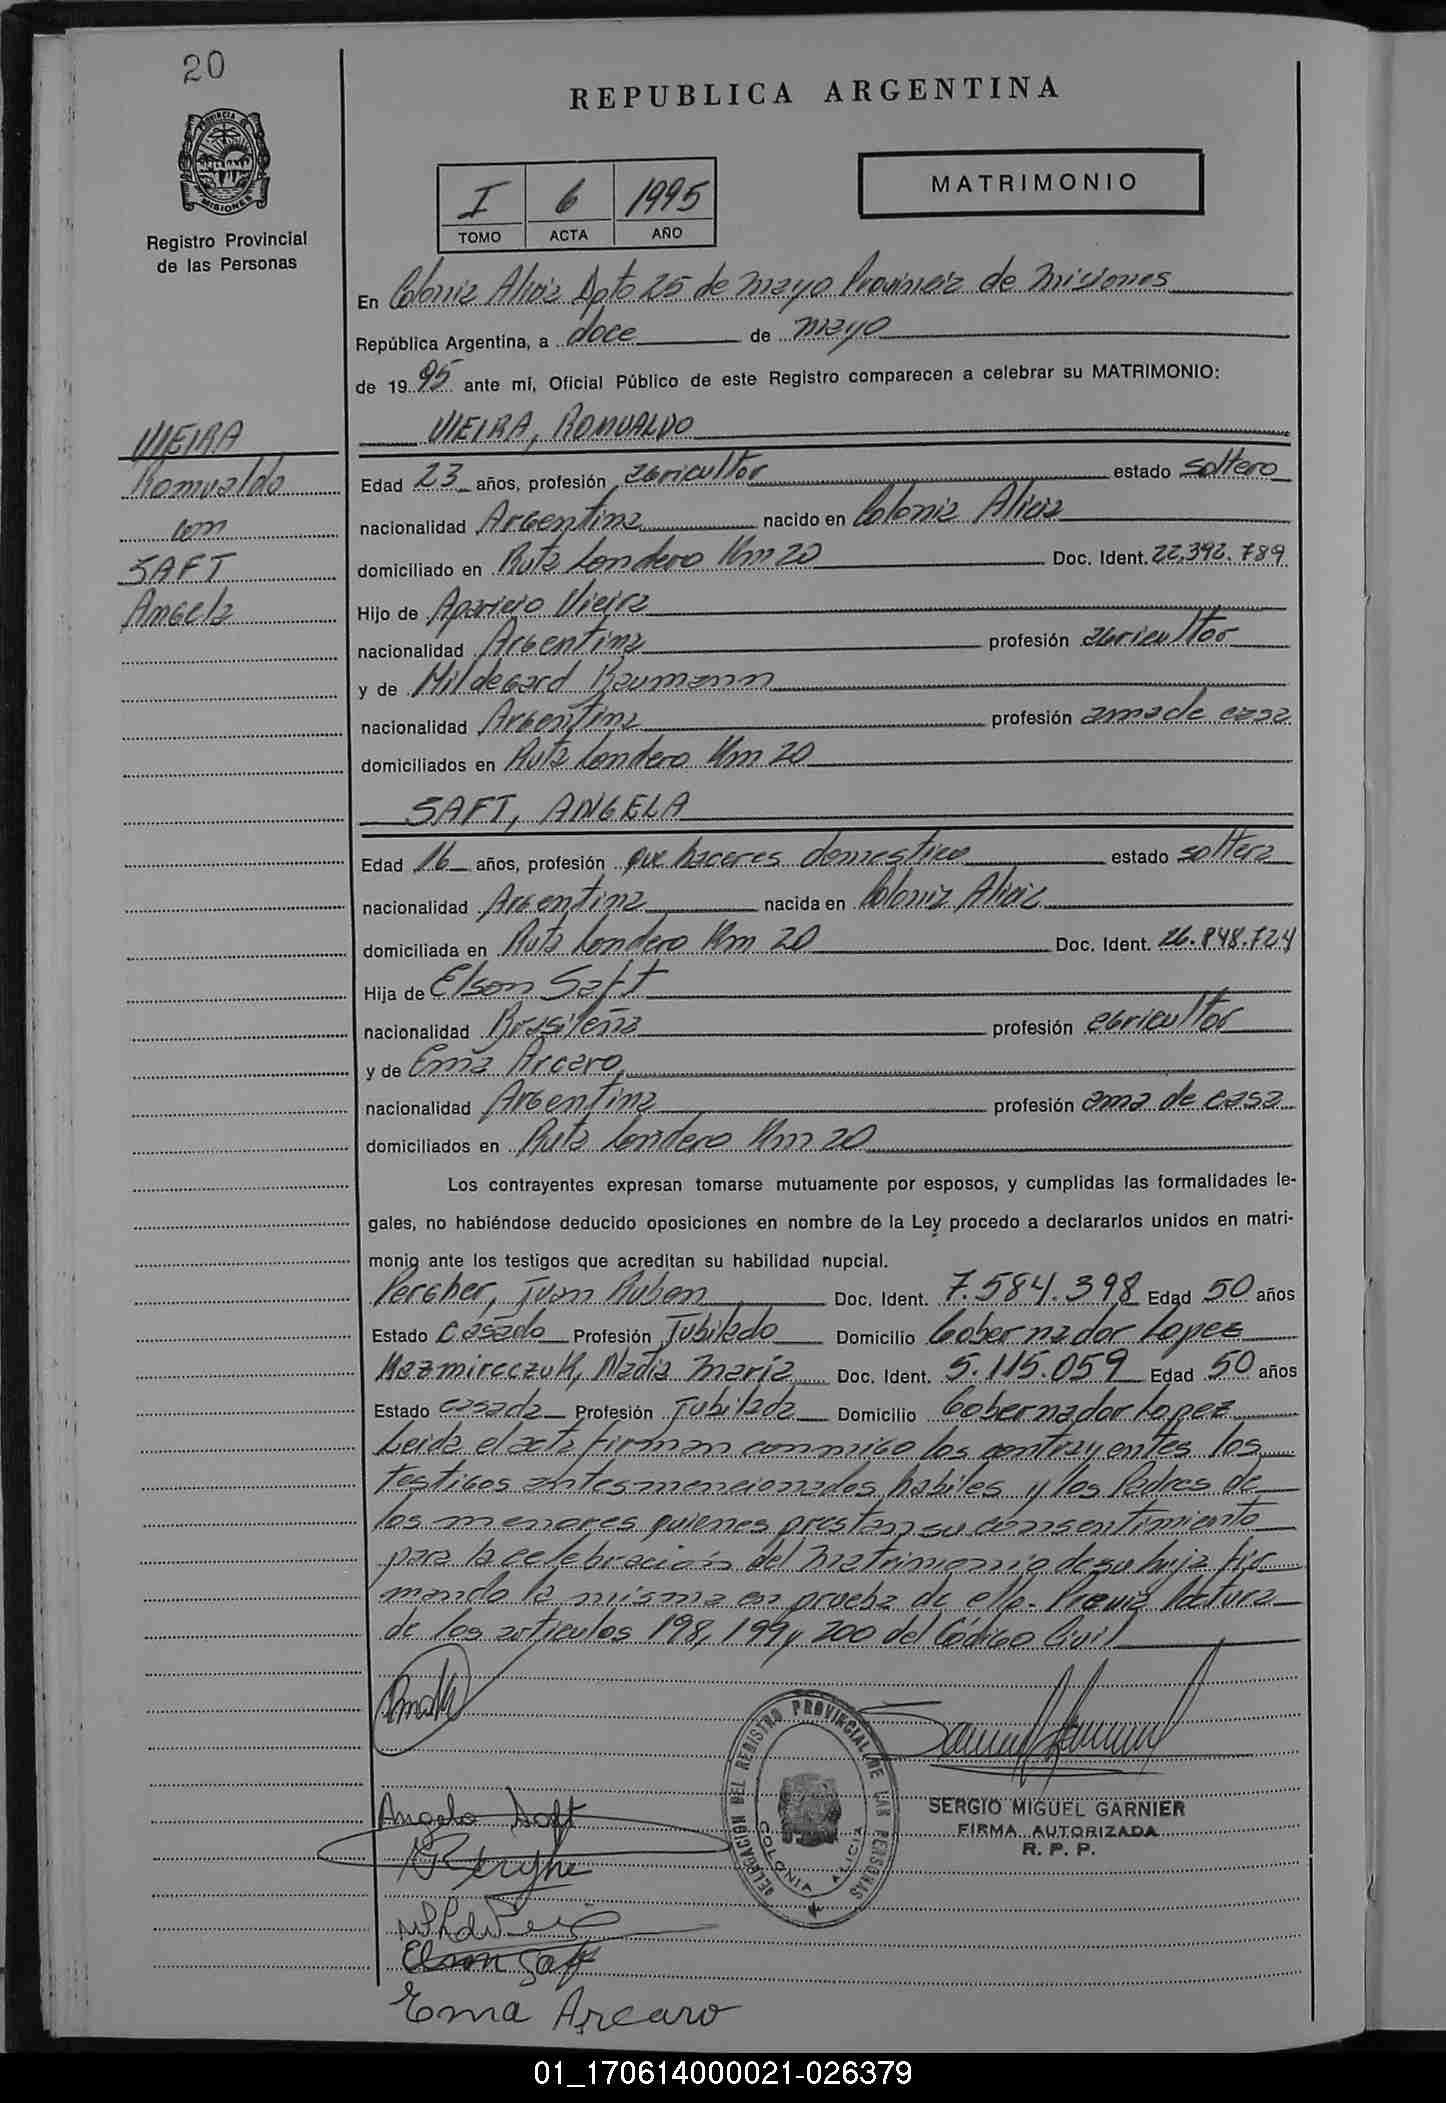 20
REPUBLICA ARGENTINA
PROVINCIA DE
MISIONES
Registro Provincial
de las Personas
I 6 1995
TOMO ACTA AÑO
MATRIMONIO
En Colonia Alicia Dpto 25 de mayo Provincia de Misiones
República Argentina, a doce de mayo
de 1995 ante mí, Oficial Público de este Registro comparecen a celebrar su MATRIMONIO:
VIEIRA
Romualdo
con
SAFT
Angela
VIEIRA, ROMUALDO
Edad 23 años, profesión agricultor estado soltero
nacionalidad Argentina nacido en Colonia Alicia
domiciliado en Ruta Londero Km 20 Doc. Ident. 22.392.789
Hijo de Aparicio Vieira
nacionalidad Argentina profesión agricultor
y de Hildegard Baumann
nacionalidad Argentina profesión ama de casa
domiciliados en Ruta Londero Km 20
SAFT, ANGELA
Edad 16 años, profesión que haceres domestico estado soltera
nacionalidad Argentina nacida en Colonia Alicia
domiciliada en Ruta Londero Km 20 Doc. Ident. 26.848.724
Hija de Elson Saft
nacionalidad Brasileña profesión agricultor
y de Ema Arcaro
nacionalidad Argentina profesión ama de casa
domiciliados en Ruta Londero Km 20
Los contrayentes expresan tomarse mutuamente por esposos, y cumplidas las formalidades le-
gales, no habiéndose deducido oposiciones en nombre de la Ley procedo a declararlos unidos en matri-
monio ante los testigos que acreditan su habilidad nupcial.
Pergher, Juan Ruben Doc. Ident. 7.584.398 Edad 50 años
Estado casado Profesión Jubilado Domicilio Gobernador Lopez
Kazmirczuk, Nadia Maria Doc. Ident. 5.115.059 Edad 50 años
Estado casada Profesión Jubilada Domicilio Gobernador Lopez
Leida el acta firman conmigo los contrayentes los
testigos antes mencionados habiles y los Padres de
los menores quienes prestan su consentimiento
para la celebración del Matrimonio de su hija fir
mando la misma en prueba de ello. Previa lectura
de los articulos 198, 199 y 200 del Código Civil
DELEGACION DEL REGISTRO PROVINCIAL DE LAS PERSONAS
COLONIA ALICIA
SERGIO MIGUEL GARNIER
FIRMA AUTORIZADA
R. P. P.
Angela Saft
Elson Saft
Ema Arcaro
01_170614000021-026379